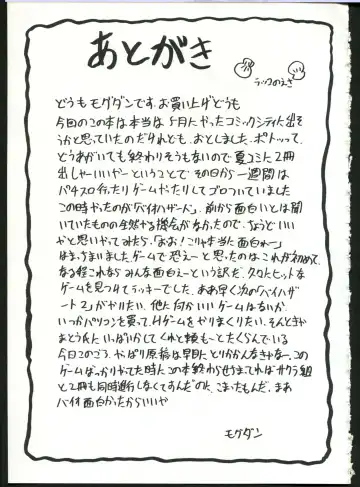 あとがき
ラッコのえさ
どうもモグダンです。お買い上げどうも
今回のこの本は本当は5月にやったコミックシティに出そ
うかと思っていたのだけれども、おとしました。ポトッって、
どうあがいても終わりそうもないので夏コミに2冊
出しゃーいいやーということで その日から一週間は
パチスロ行ったりゲームやったりしてゴロついていました
この時やったのが「バイオハザード」。前から面白いとは聞
いていたものの全然やる機会がなかったので、ちょうどいい
かと思いやってみたら、「おお!こりゃ本当に面白れー」
はまってしまいました ゲームで恐えーと思ったのはこれが初めて、
なる程これなら みんな面白えーという訳だ。久々のヒットな
ゲームを見つけてラッキーでした。ああ早く次の「バイオハザ
ード2」がやりたい。他に何かいいゲームはないか、
いつかパソコンを買って、Hゲームをやりまくりたい。そんときゃ
さとう氏に いっぱいかしてくれと頼もーとたくらんでいる
今日このごろ。やっぱり原稿は早目にとりかかんなきゃなー。この
ゲームばっかりやってた時にこの本終わらせてればサクラ組
と2冊も同時進行しなくてすんだのに、こまったもんだ。まあ
バイオ面白かったからいいや
モグダン